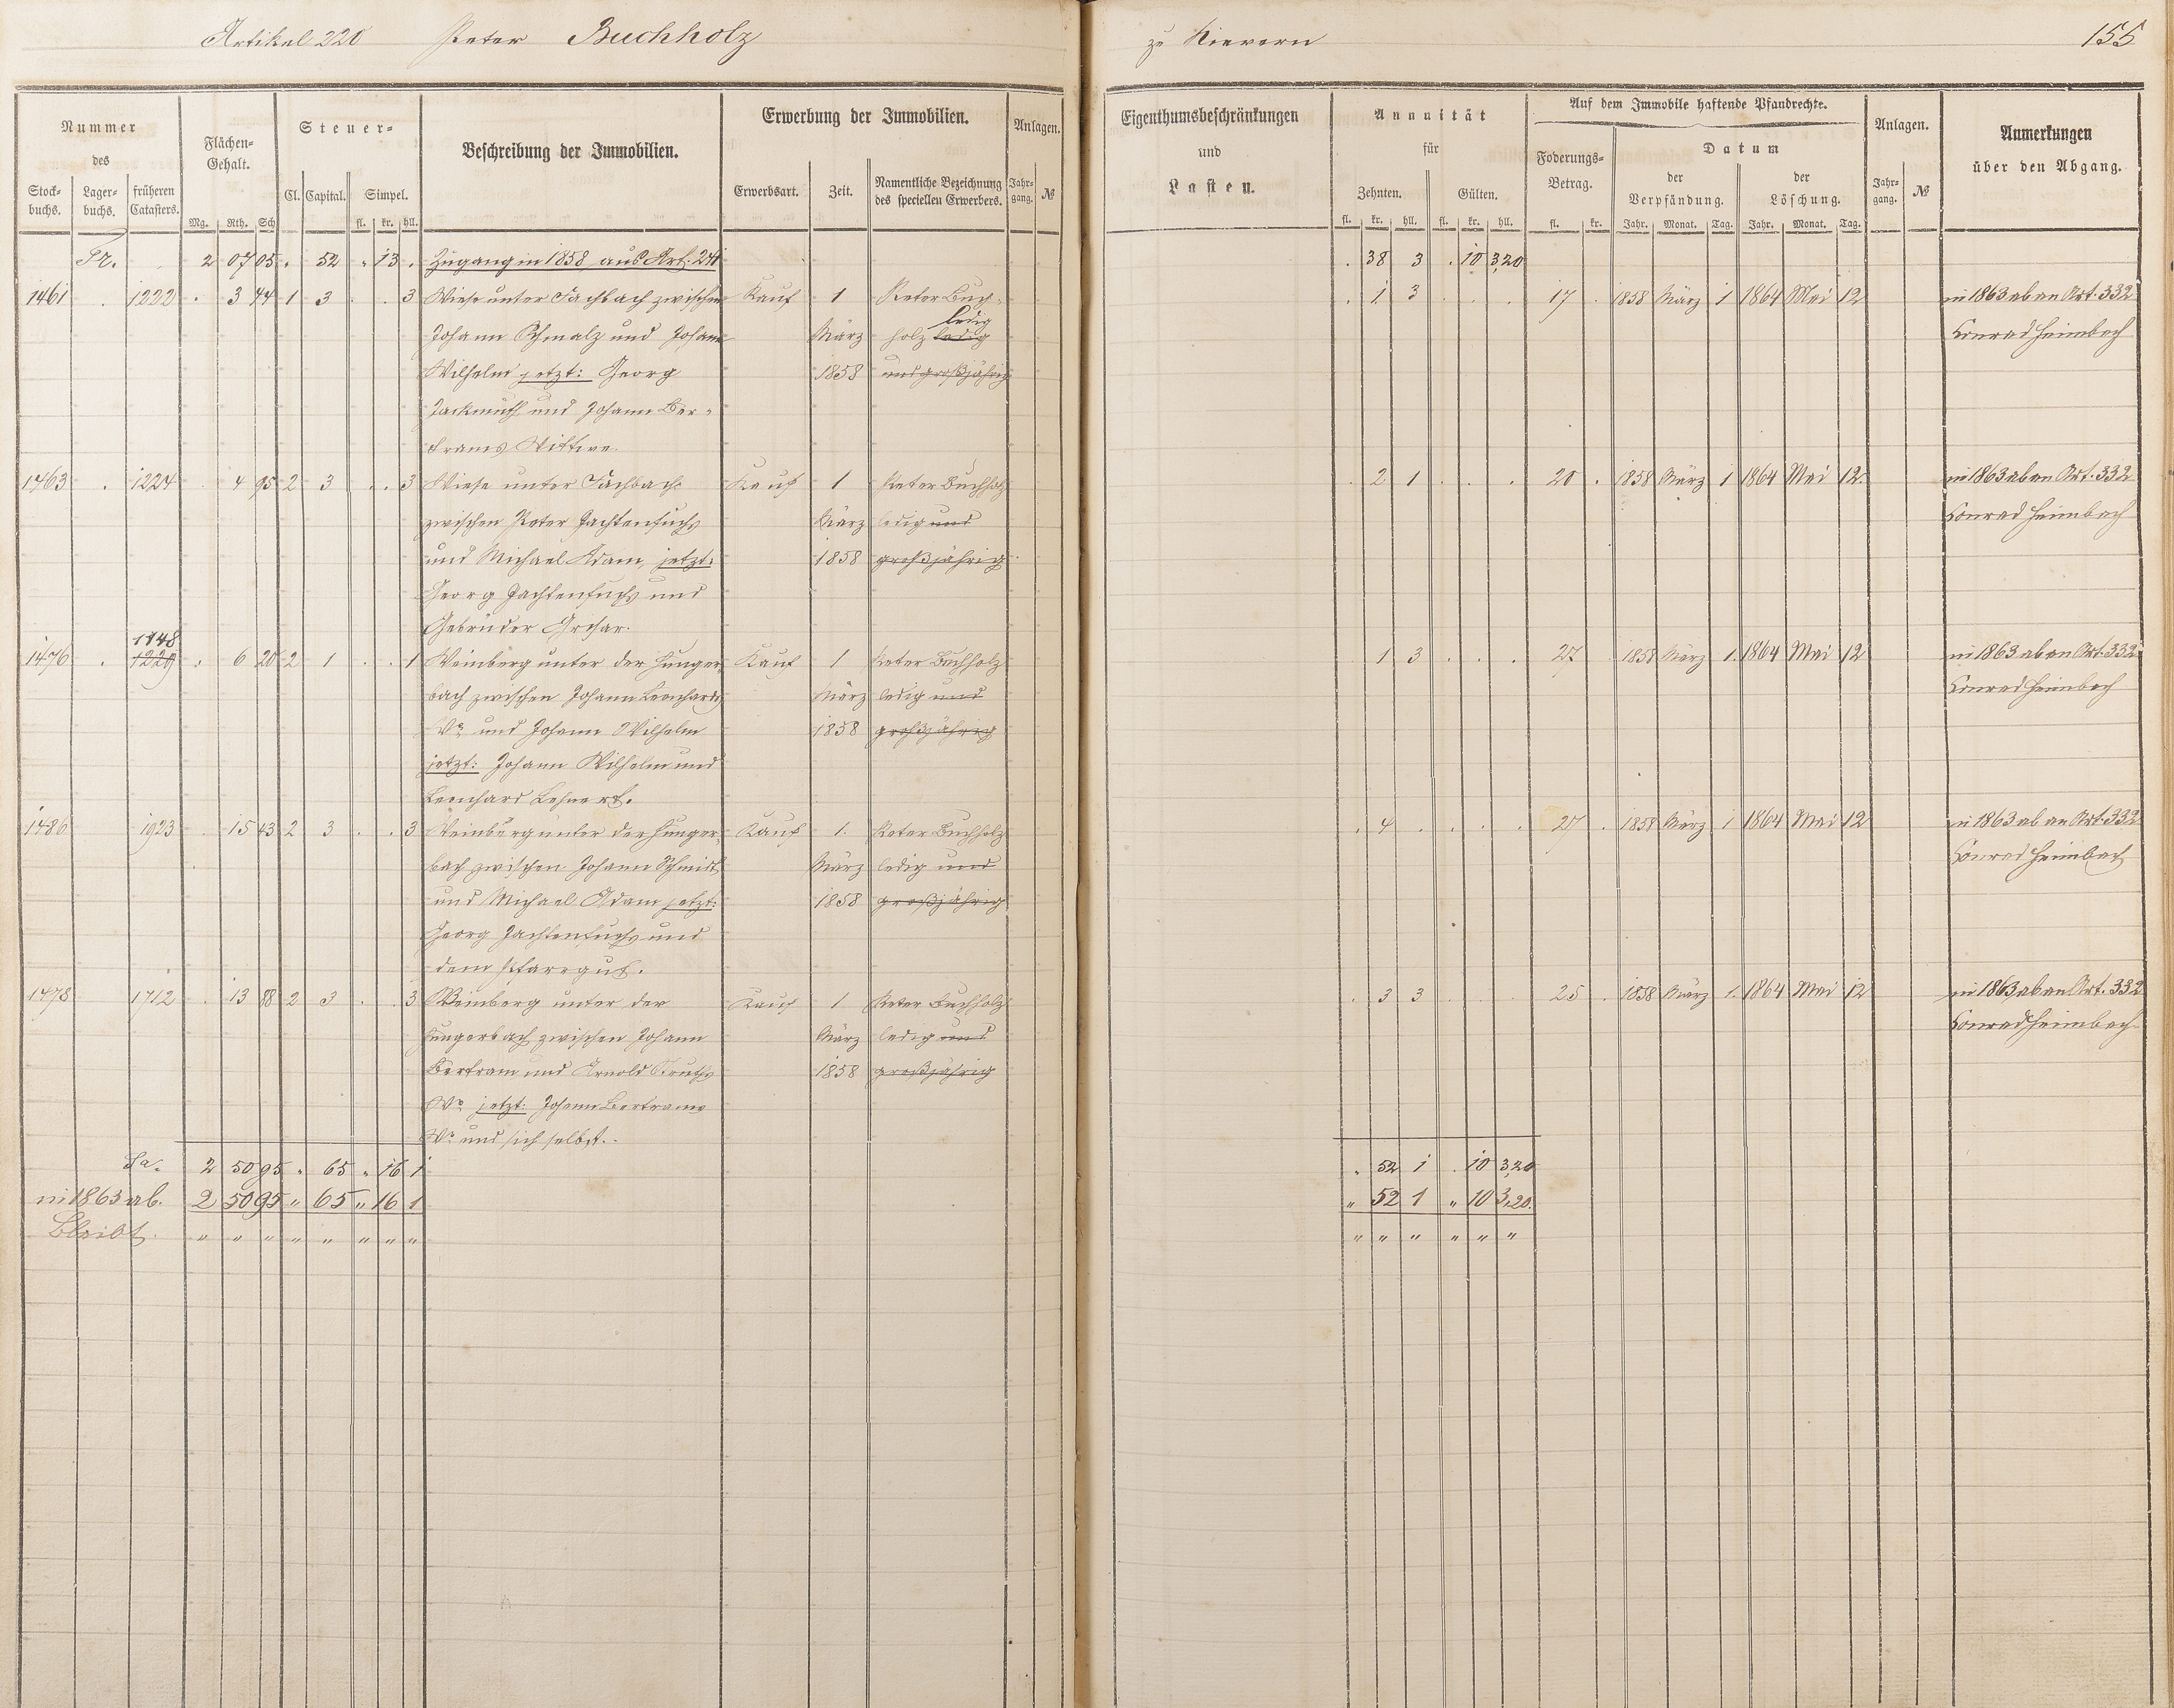 Artikel 220 Peter Buchholz zu Nievern 155
Nummer
des
Stock-
buchs.
Lager-
buchs.
früheren
Catasters.
Flächen-
Gehalt.
Mg. Rth. Sch
Steuer-
Cl. Capital. Simpel.
fl. kr. hll.
Beschreibung der Immobilien.
Erwerbung der Immobilien.
Erwerbsart. Zeit. Namentliche Bezeichnung
des speciellen Erwerbers.
Anlagen.
Jahr-
gang.
№
Eigenthumsbeschränkungen
und
Lasten.
Annuität
für
Zehnten. Gülten.
fl. kr. hll. fl. kr. hll.
Auf dem Immobile haftende Pfandrechte.
Foderungs-
Betrag.
fl. kr.
Datum
der
Verpfändung.
Jahr. Monat. Tag.
der
Löschung.
Jahr. Monat. Tag.
Anlagen.
Jahr-
gang.
№
Anmerkungen
über den Abgang.
Tr. 2 07 05 . 52 . 13 . Zugang in 1858 aus Art. 241 . 38 3 . 10 3,20
1461 . 1222 . 3 44 1 3 . . 3 Wiese unter Fachbach zwischen Kauf 1 Peter Buch- . 1 3 . . . 17 . 1858 März 1 1864 Mai 12 in 1863 ab an Art. 332
Johann Schmalz und Johann März holz ledig ledig Conrad Heimbach
Wilhelm jetzt: Georg 1858 und großjährig
Zackmuth und Johann Ber-
trams Wittwe.
1463 . 1224 . 4 95 2 3 . . 3 Wiese unter Fachbach Kauf 1 Peter Buchholz . 2 1 . . . 20 . 1858 März 1 1864 Mai 12. in 1863 ab an Art. 332
zwischen Peter Jachtenfuchs März ledig und Conrad Heimbach
und Michael Adam, jetzt: 1858 großjährig
Georg Jachtenfuchs und
Gebrüder
1848
1476 . 1229 . 6 20 2 1 . . 1 Weinberg unter der Hunger- Kauf 1 Peter Buchholz . 1 3 . . . 27 . 1858 März 1. 1864 Mai 12 in 1863 ab an Art. 332
bach zwischen Johann Leonhards März ledig und Conrad Heimbach
Wb. und Johann Wilhelm 1858 großjährig
jetzt: Johann Wilhelm und
Leonhard Lehnert.
1486 1923 . 15 43 2 3 . . 3 Weinberg unter der Hunger- Kauf 1. Peter Buchholz . 4 . . . . 27 . 1858 März 1 1864 Mai 12 in 1863 ab an Art. 332
bach zwischen Johann Schmidt März ledig und Conrad Heimbach
und Michael Adam jetzt: 1858 großjährig
Georg Jachtenfuchs und
dem Pfarrgut.
1478 1712 . 13 88 2 3 . . 3 Weinberg unter der Kauf 1 Peter Buchholz . 3 3 . . . 25 . 1858 März 1. 1864 Mai 12 in 1863 ab an Art. 332
Hungerbach zwischen Johann März ledig und Conrad Heimbach
Bertram und Arnold 1858 großjährig
Wb. jetzt: Johann Bertrams
Wb. und sich selbst.
Sa. 2 50 95 . 65 . 16 1 . 52 1 . 10 3,20
in 1863 ab. 2 50 95 " 65 " 16 1 " 52 1 " 10 3,20.
Bleibt. " " " " " " " " " " " " " "